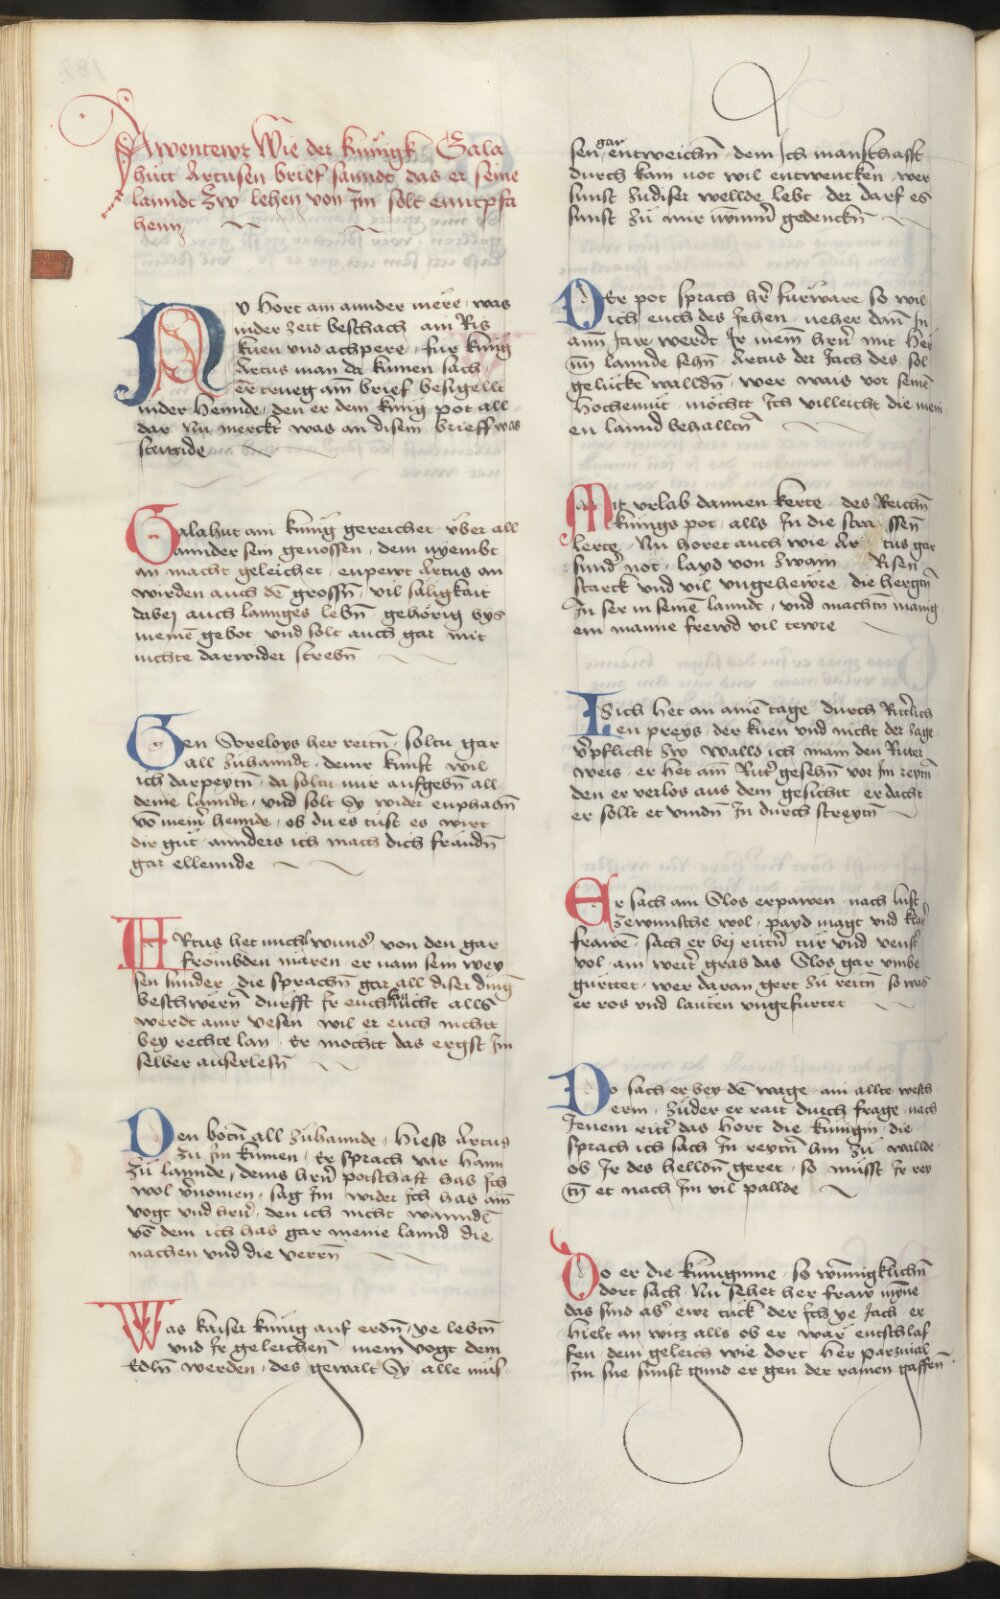 Awentewr Wie der kunigk Gala
hutt Artusen brief sanndt das er seine
lanndt Zw lehen von Im solt enntpfa
henn
Nv hort am annder mere, was
inder zeit beschach am Ris
kuen vnd achpere, fur kunig
Artus man da kumen sach,
er trueg ain brief besigellt
inder hennde, den er dem kunig pot all
dar Nu merckt was an disem brieff was
steunde
Galahut ain kunig gereichet vber all
annder sein genossen, dem nyembt
an macht geleichet, enpewt Artus an
wirden auch dē grossn̄, vil saligkait
dabej auch lannges lebn̄ gehorig bys
meinē gebot vnd solt auch gar mit
nichte darwider strebn̄
Gen Soreloys her reitn̄, soltu gar
all zuhanndt, deinr kunft wil
ich darpeytn̄, da soltu mir aufgebn̄ all
deine lanndt, vnd solt Sy wider enphahn̄
vō meinr hennde, ob du es tust es wirt
dir gut annders ich mach dich fraudn̄
gar ellennde
Artus het michl wunnd, von den gar
froimbden maren er nam sein wey
sen sunder, die sprachn̄ gar all diser ding
beschwern̄ durfft Ir euch nicht alls
werdt ainr vesen, wil er euch nichtt
bey rechte lan, Er mochtt das ergst Im
selber auserlesn̄
Den botn̄ all zuhannde, hiess Artus
zu Im kumen, Er sprach var hann
zu lannde, deins hrn̄ potschaft has Ich
wol v̄nomen, sag Im wider Ich has ain
vogt vnd hrn̄, den ich nicht wanndl
vō dem ich has gar meine lannd die
nachen vnd die verrn̄
Was kaiser kunig auf erdn̄, ye lebtn̄
vnd Ir geleichen meim vogt dem
Edln̄ werden, des gewalt Sy alle mus-
sen gar entweichn̄ dem Ich manschafft
durch kain not wil entwencken, wer
sunst zudiser wellde lebt der darf es
sunst zu mir nym̄er gedenckn̄
Der pot sprach her furware so wil
ich euch des Jehen, neher dan̄ In
aim Jare werdt Ir mein hrn̄ mit her
im lannde sehn̄ Artus der Jach des sol
gelucke walldn̄, wer wais vor seinē
hochemut mochtt Ich villeicht die mein
en lannd behalltn̄
Mit vrlab dannen kerte, des Reichn̄
kunigs pot, alls In die strassen
lerte, Nu horet auch wie Artus gar
sunder not, layd von zwain Risen
starck vnd vil vngehewre, die hergtn̄
In ser in seinē lanndt, vnd machtn̄ manig
em manne frewd vil tewre
Es sich het an ainē tage durch Ritrlich
en preys, der kuen vnd nicht der zage
v̄pflicht zw walls ich main den Ritter
weis, er het ain Ritr gesehn̄ vor Im reytn̄
den er verlos aus dem gesichtt er dacht
er sollt et vindn̄ In durch streytn̄
Er sach ain Slos erpawen, nach lust
zewunsche wol, payd magt vnd klar
frawē, sach er bej ritrn̄ tur vnd venstr
vol, ain weitr gras das Slos gar vmbe
gurttet, wer daran gert zu reitn̄ so was
er ros vnd lauten vngefurtet
Do sach er bey dē wage, ain allte wesch
erin, zuder er rait durch frage, nach
Jenem ritr das hort die kunigin, die
sprach ich sach In reytn̄ hin zu wallde,
ob Ir des helldn̄ geret, so musst Ir rey
tn̄ et nach Im vil pallde
Do er die kuniginne, so wunigklichn̄
dort sach, Nu sehet her fraw mynne
das sind abr ewr tuck der Ich ye Jach er
hielt an witz alls ob er war entschlaf
fen, dem geleich wie dort her parzival
Im sne sunst gund er gen der rainen gaffen̄